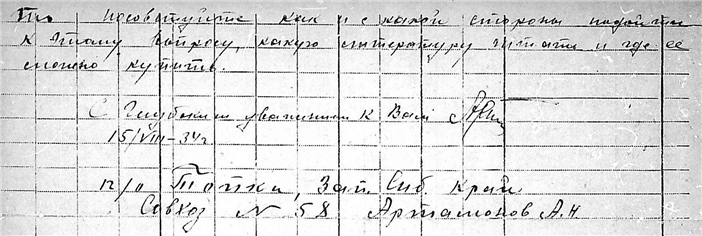 посоветуйте как и с какой стороны подойти
к этому вопросу, какую литературу читать и где ее
можно купить.
С глубоким уважением к Вам
15/VIII-34 г.
п/о Топки, Зап. Сиб. край.
Совхоз N 58 Артамонов А.Н.